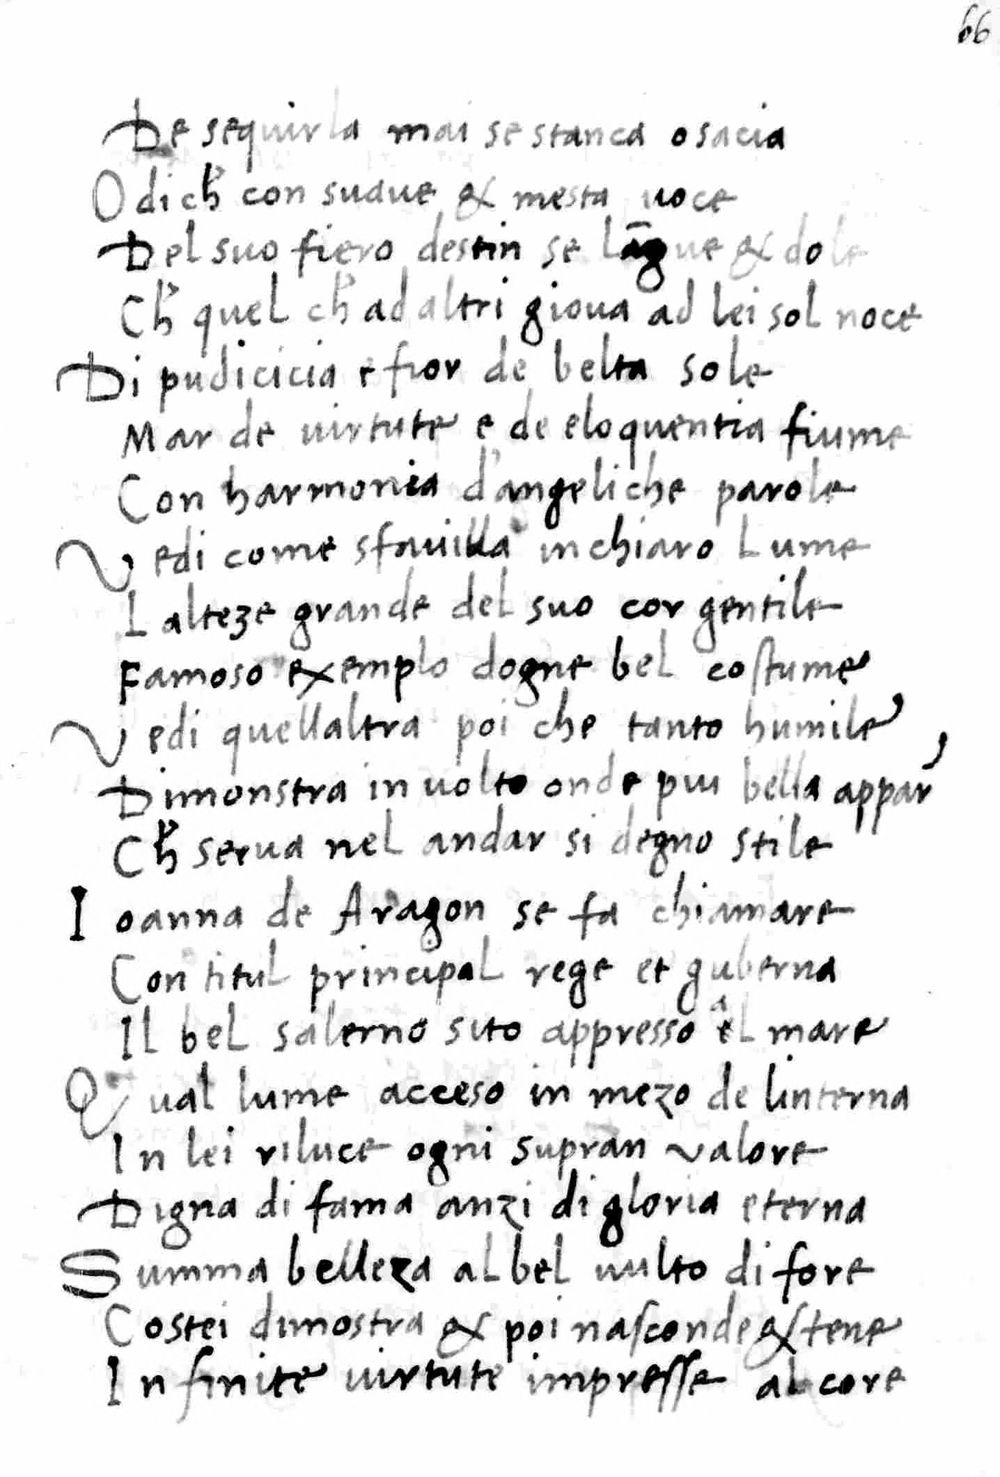 66
De sequirla mai se stanca o sacia
Odi ch' con suave & mesta voce
Del suo fiero destin se lãgue & dole
Ch' quel ch' ad altri giova ad lei sol noce
Di pudicicia e fior de belta sole
Mar de virtute e de eloquentia fiume
Con harmonia d'angeliche parole
Vedi come sfavilla in chiaro lume
Lalteze grande del suo cor gentile
Famoso exemplo dogne bel costume
Vedi quellaltra poi che tanto humile
Dimonstra in volto onde piu bella appar'
Ch' serva nel andar si degno stile
Ioanna de Aragon se fa chiamare
Con titul principal rege et guberna
Il bel salerno sito appresso el mare
Qual lume acceso in mezo de linterna
In lei riluce ogni supran valore
Digna di fama anzi di gloria eterna
Summa belleza al bel vulto di fore
Costei dimostra & poi nasconde & tene
Infinite virtute impresse al core